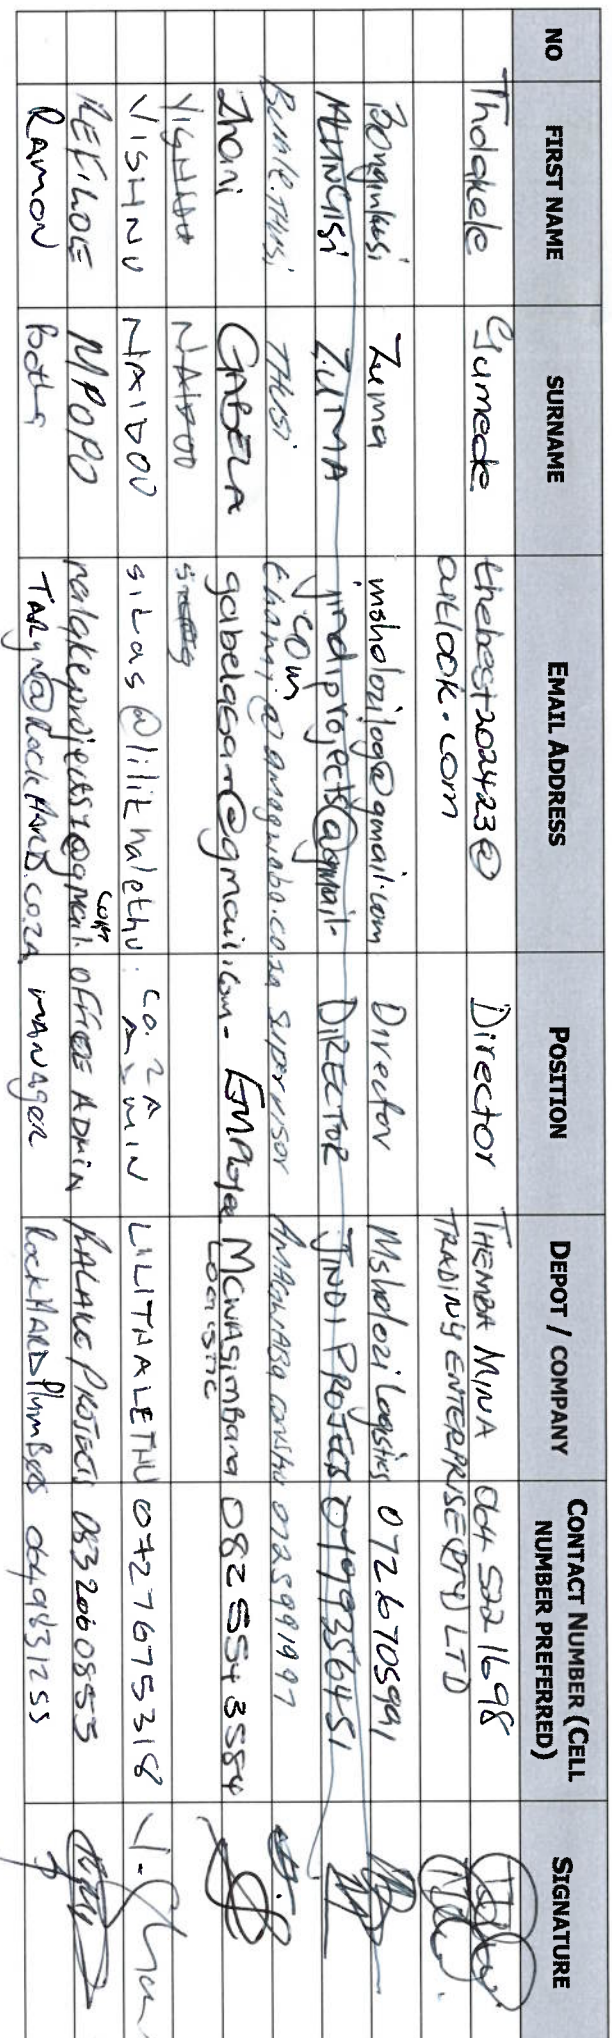 NO FIRST NAME SURNAME EMAIL ADDRESS POSITION DEPOT / COMPANY CONTACT NUMBER (CELL NUMBER PREFERRED) SIGNATURE
Tholakele Gumede thebest202423@ Director THEMBA MINA 064 522 1698
outlook.com TRADING ENTERPRISE(PTY) LTD
Bonginkosi Zuma msholozilog@gmail.com Director Msholozi Logistics 0726705991
MLUNGISI ZUMA jindiprojects@gmail. DIRECTOR JINDI PROJECTS 0799356451
.com
THUSI @amagwaba.co.za SUPERVISOR AMAGWABA 0725991997
Zhani GABELA gabelasar@gmail.com - EMPloyee MCWASimBana 0825548584
NAIDOO
VISHNU NAIDOO silas@lilithalethu.co.za ADMIN LILITHALETHU 0727675318
REFILOE MPOPO ralakeprojects1@gmail.com OFFICE ADMIN RALAKE PROJECTS 0832060855
RAMON Botha TARyn@RockHARD.co.za MANAGER RockHARD Plumbers 0649831255